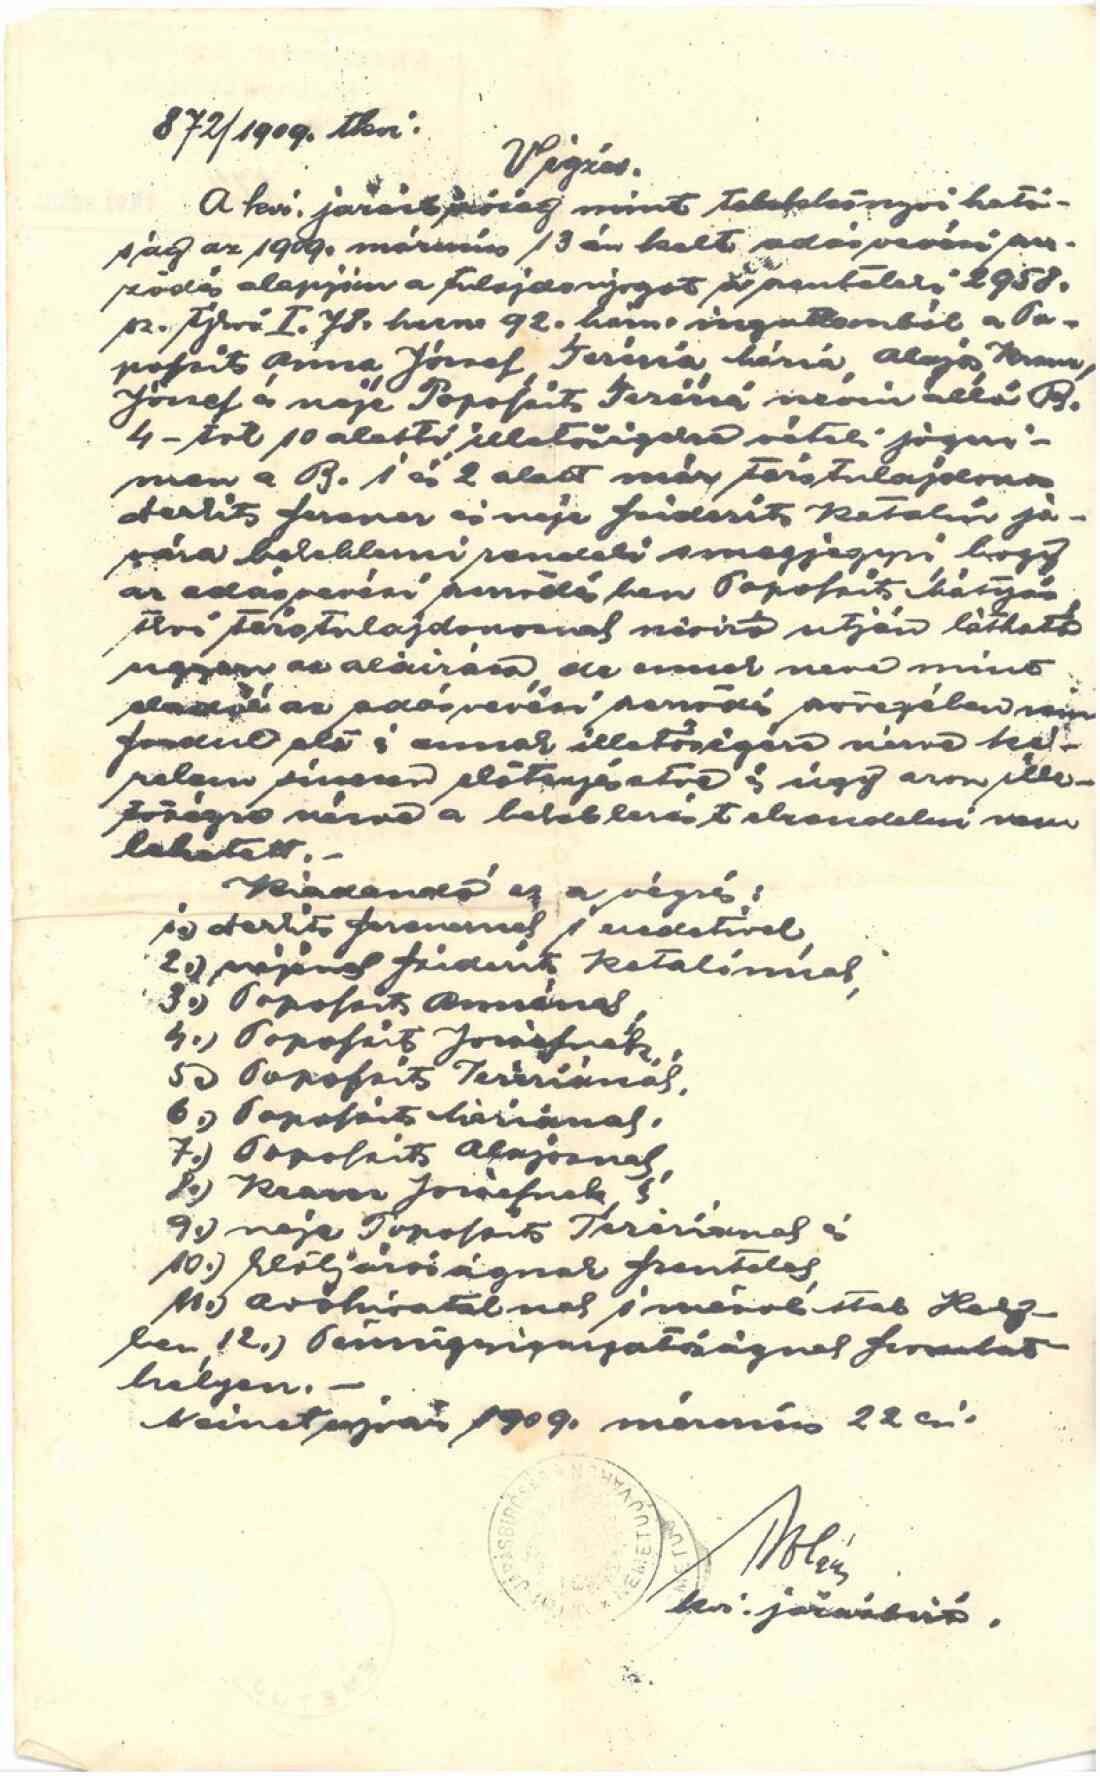 872/1909. tkvi.
Végzés.
A kir. járásbíróság mint telekkönyvi ható-
ság az 1909. márczius 13 án kelt adásvevési szer-
ződés alapján a tulajdonjogot a szenteleki 2958.
sz. tjkvi I. 78. hrsz. 92. ház. ingatlanból a Po-
pofsits Anna, József, Terézia, Mária, Alajos, Kraur
József és neje Popofsits Terézia nevén álló B.
4 - tol 10 alatti illetőségére vétel jogczi-
men a B. 1 és 2 alatt már társtulajdonos
Ferencz és neje Katalin ja-
vára bekeblezni rendeli s megjegyzi, hogy
az adásvevési szerződésben Popofsits Mátyás
tkvi társtulajdonosnak névíró utján látható
ugyan az aláirása, de ennek neve mint
eladóé az adásvevési szerződés szövegében nem
fordul elő s annak illetőségére nézve ké-
relem sincsen előterjesztve s így azon ille-
tőségre nézve a bekeblezést elrendelni nem
lehetett. -
Kiadandó ez a végzés:
1.) Ferencznek s eredetivel,
2.) nejének Katalinnak,
3.) Popofsits Annának,
4.) Popofsits Józsefnek,
5.) Popofsits Teréziának,
6.) Popofsits Máriának.
7.) Popofsits Alajosnak,
8.) Kraur Józsefnek, s
9.) neje Popofsits Teréziának és
10.) Elöljáróságnak Szentelek,
11.) Adóhivatalnak Hely-
ben, 12.) Pénzügyigazgatóságnak Szombat-
helyen. -
Németujvár 1909. márczius 22 én.
kir. járásbiró.
NÉMETUJVÁRI KIR. JÁRÁSBIRÓSÁG